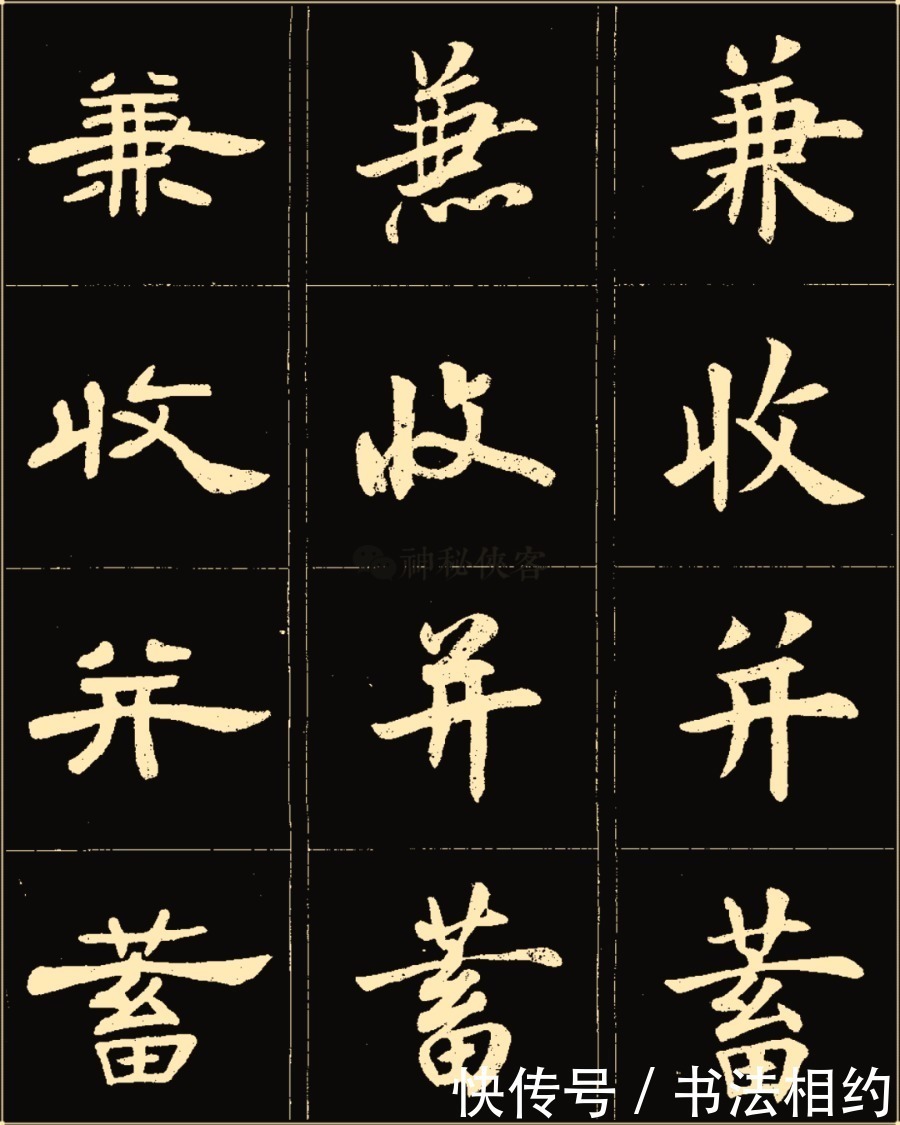 兼 兼 兼
收 收 收
并 并 并
蓄 蓄 蓄
神秘侠客
快传号 / 书法相约